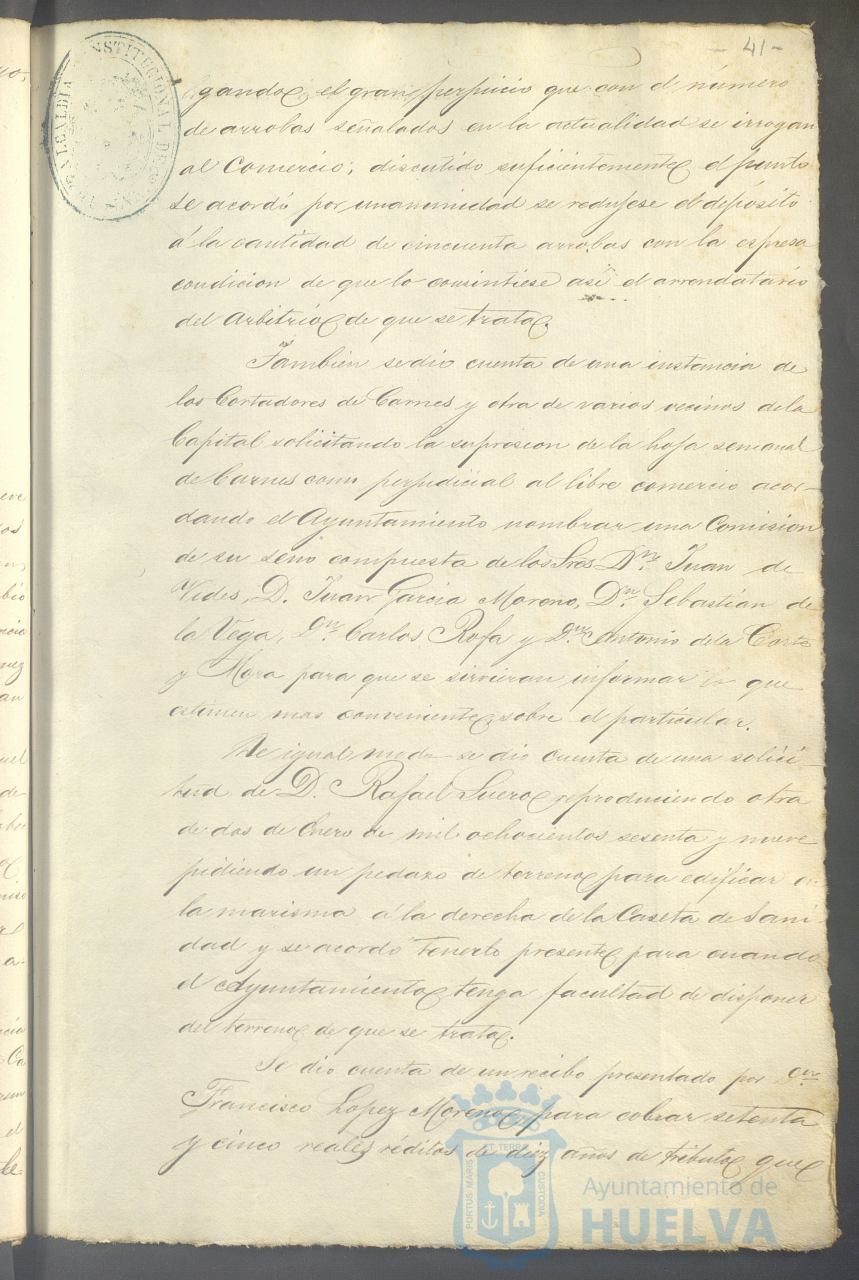 - 41 -
gando el gran perjuicio que con el número
de arrobas señalados en la actualidad se irrogan
al Comercio; discutido suficientemente el punto
se acordó por unanimidad se redujese el depósito
á la cantidad de cincuenta arrobas con la espresa
condicion de que lo consintiese asi el arrendatario
del Arbitrio de que se trata.
Tambien se dio cuenta de una instancia de
los Cortadores de Carnes y otra de varios vecinos de la
Capital solicitando la supresion de la hoja semanal
de Carnes como perjudicial al libre comercio acor-
dando el Ayuntamiento nombrar una Comision
de su seno compuesta de los Sres Dn. Juan de
Vides, D. Juan Garcia Moreno, Dn. Sebastián de
la Vega, Dn. Carlos Rofa y Dn. Antonio de la Corte
y Mora para que se sirvieran informar lo que
estimen mas conveniente sobre el particular.
De igual modo se dio cuenta de una solici-
tud de D. Rafael Suero reproduciendo otra
de dos de Enero de mil ochocientos sesenta y nueve
pidiendo un pedazo de terreno para edificar en
la marisma á la derecha de la Caseta de Sani-
dad y se acordó tenerlo presente para cuando
el Ayuntamiento tenga facultad de disponer
del terreno de que se trata.
Se dio cuenta de un recibo presentado por Dn.
Francisco Lopez Moreno para cobrar setenta
y cinco reales réditos de diez años de tributo que
ALCALDIA CONSTITUCIONAL DE
PORTUS MARIS
ET TERRE
CUSTODIA
Ayuntamiento de
HUELVA